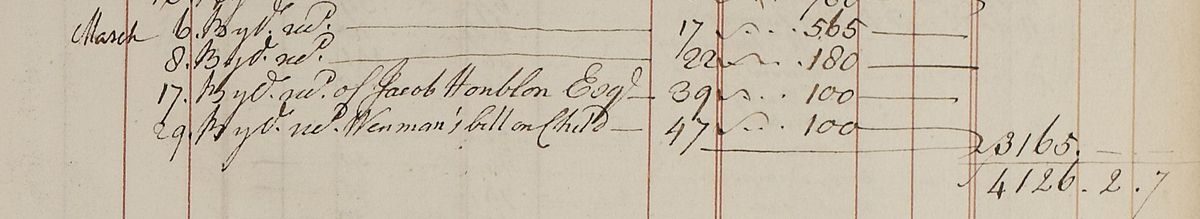 March 6. By d.º rec.d 17 565
8. By d.º rec.d 22 180
17. By d.º rec.d of Jacob Houblon Esq.r 39 100
29. By d.º rec.d Wenman's bill on Child 47 100
3165. — —
4126. 2. 7